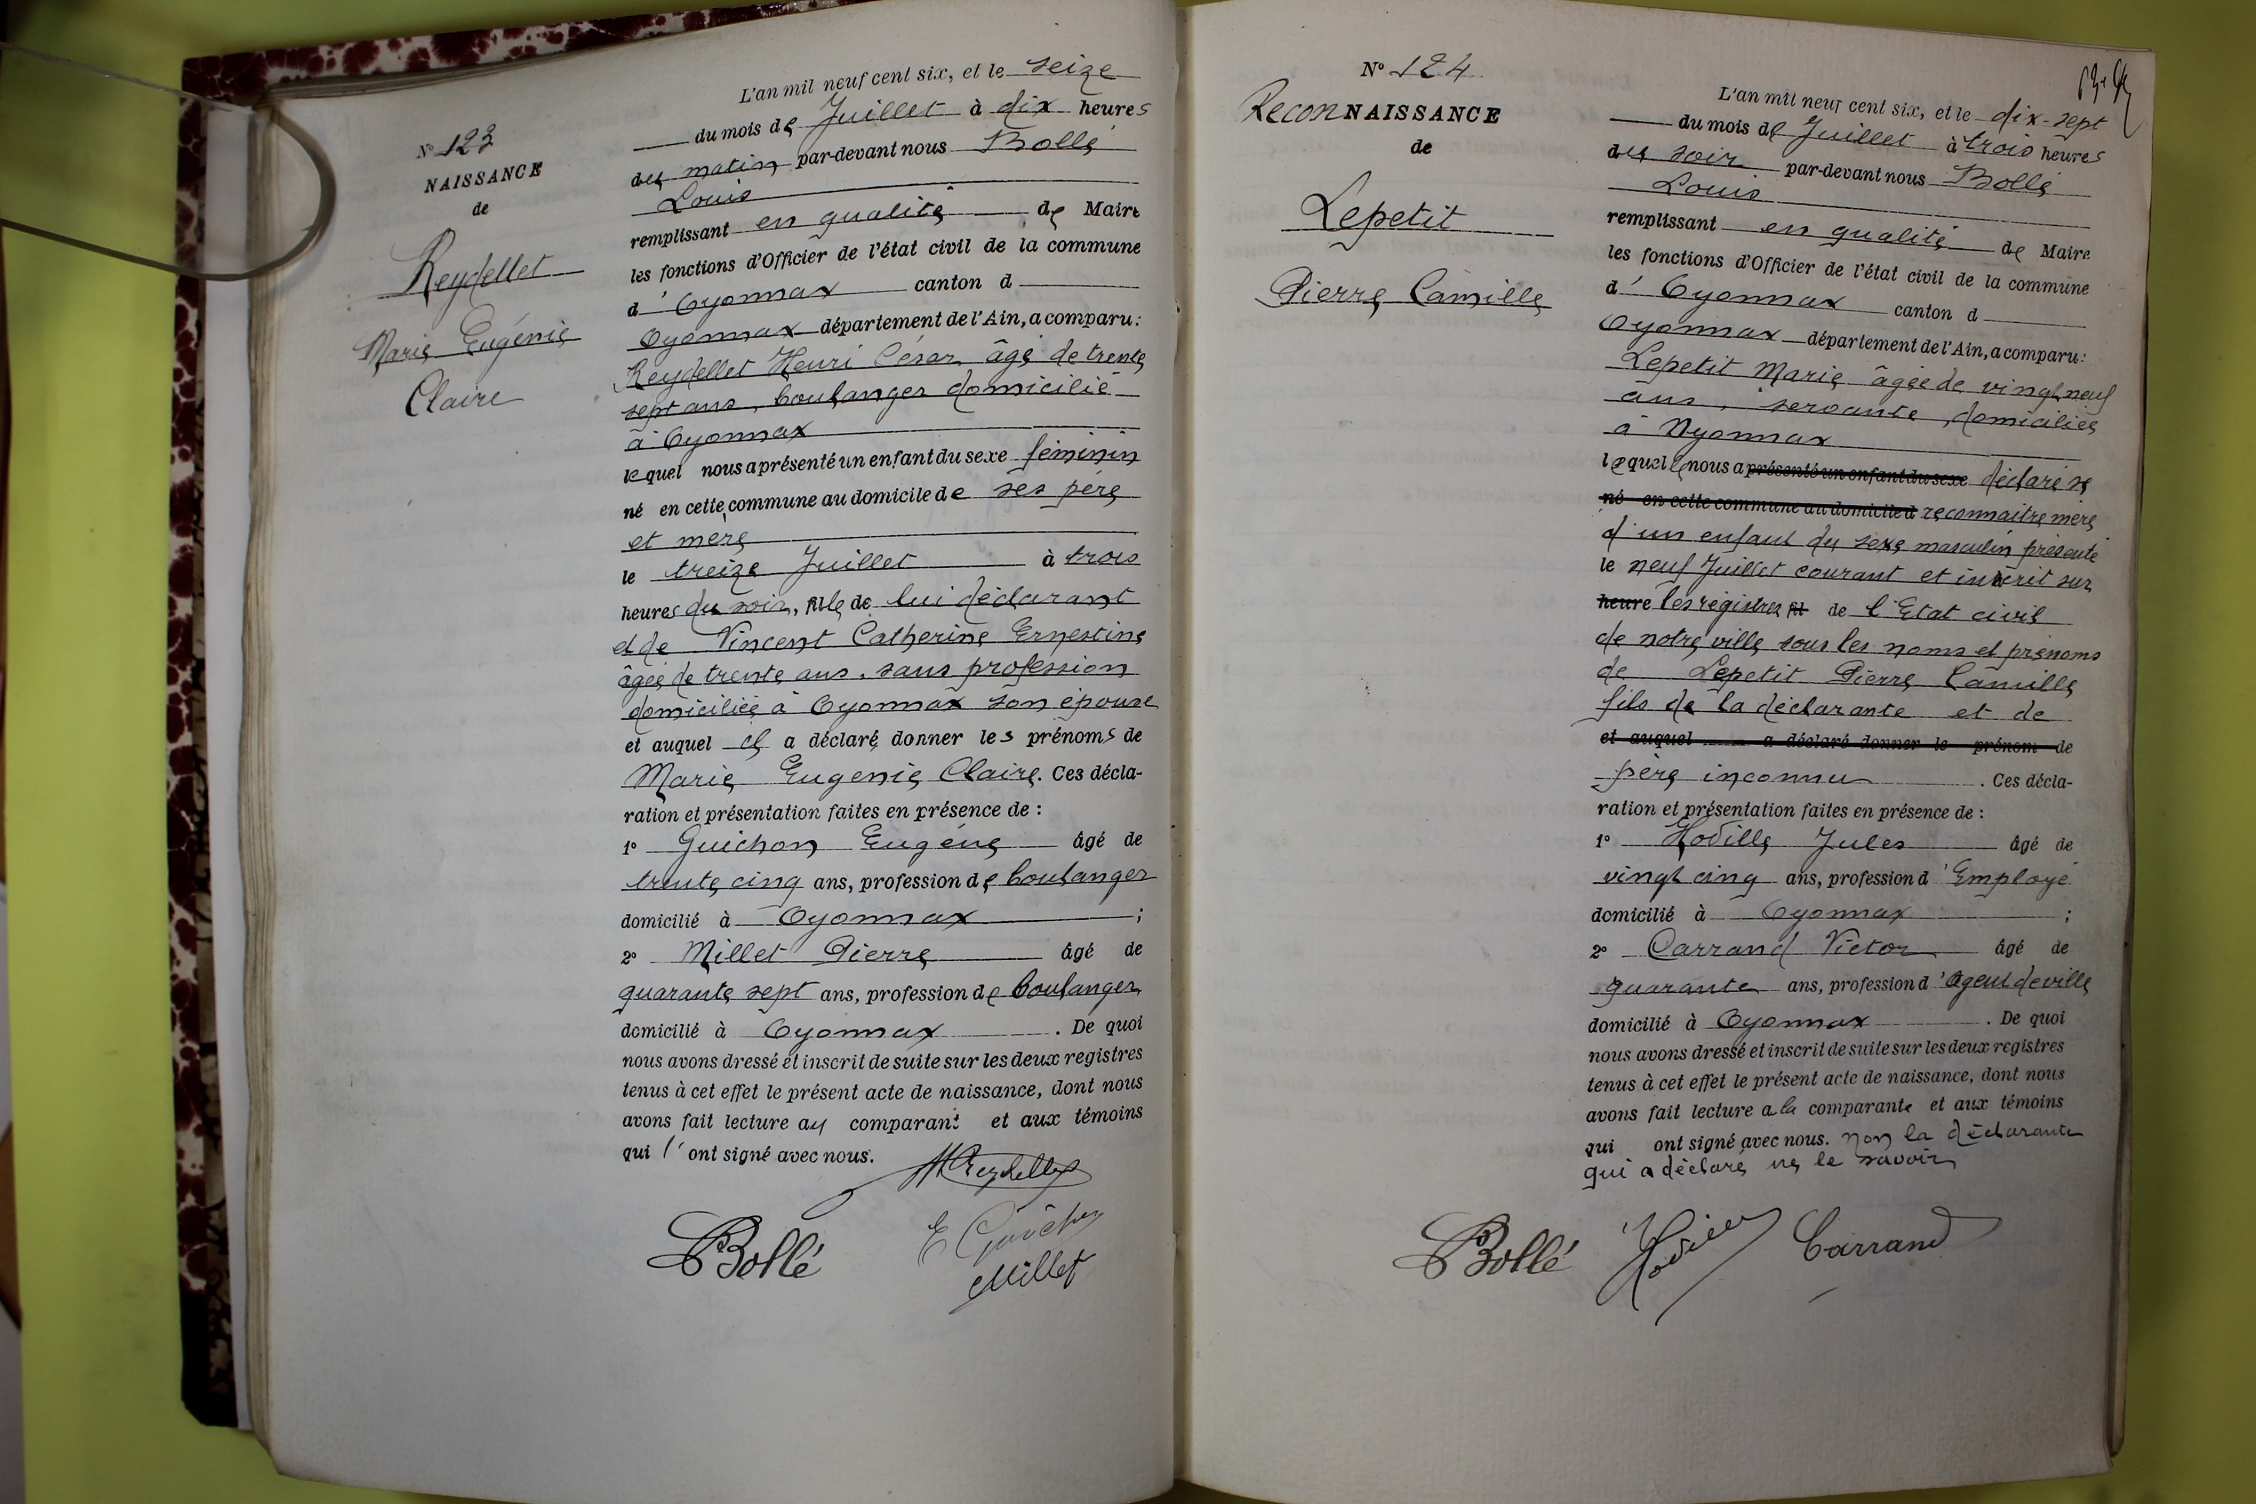 N° 123
NAISSANCE
de
Reydellet
Marie Eugénie
Claire
L'an mil neuf cent six, et le seize
du mois de Juillet à dix heures
du matin par-devant nous Bollé
Louis
remplissant en qualité de Maire
les fonctions d'Officier de l'état civil de la commune
d'Oyonnax canton d
Oyonnax département de l'Ain, a comparu :
Reydellet Henri César âgé de trente
sept ans, boulanger domicilié
à Oyonnax
lequel nous a présenté un enfant du sexe féminin
né en cette commune au domicile de ses père
et mère
le treize Juillet à trois
heures du soir, fille de lui déclarant
et de Vincent Catherine Ernestine
âgée de trente ans, sans profession
domiciliée à Oyonnax son épouse
et auquel il a déclaré donner les prénoms de
Marie Eugenie Claire. Ces décla-
ration et présentation faites en présence de :
1° Guichon Eugéne âgé de
trente cinq ans, profession de boulanger
domicilié à Oyonnax ;
2° Millet Pierre âgé de
quarante sept ans, profession de boulanger
domicilié à Oyonnax. De quoi
nous avons dressé et inscrit de suite sur les deux registres
tenus à cet effet le présent acte de naissance, dont nous
avons fait lecture au comparant et aux témoins
qui l'ont signé avec nous.
HReydellet
Bollé
E Guichon
Millet
N° 124
ReconNAISSANCE
de
Lepetit
Pierre Camille
L'an mil neuf cent six, et le dix-sept
du mois de Juillet à trois heures
du soir par-devant nous Bollé
Louis
remplissant en qualité de Maire
les fonctions d'Officier de l'état civil de la commune
d'Oyonnax canton d
Oyonnax département de l'Ain, a comparu :
Lepetit Marie âgée de vingt neuf
ans, servante, domiciliée
à Oyonnax
laquelle nous a présenté un enfant du sexe déclaré se
né en cette commune au domicile d reconnaitre mère
d'un enfant du sexe masculin présenté
le neuf Juillet courant et inscrit sur
heure les registres fil de l'Etat civil
de notre ville sous les noms et prénoms
de Lepetit Pierre Camille
fils de la déclarante et de
et auquel a déclaré donner le prénom de
père inconnu. Ces décla-
ration et présentation faites en présence de :
1° Hoville Jules âgé de
vingt cinq ans, profession d'Employé
domicilié à Oyonnax ;
2° Carrand Victor âgé de
quarante ans, profession d'Agent de ville
domicilié à Oyonnax. De quoi
nous avons dressé et inscrit de suite sur les deux registres
tenus à cet effet le présent acte de naissance, dont nous
avons fait lecture a la comparante et aux témoins
qui ont signé avec nous. non la déclarante
qui a déclaré ne le savoir
Bollé
Hoville
Carrand